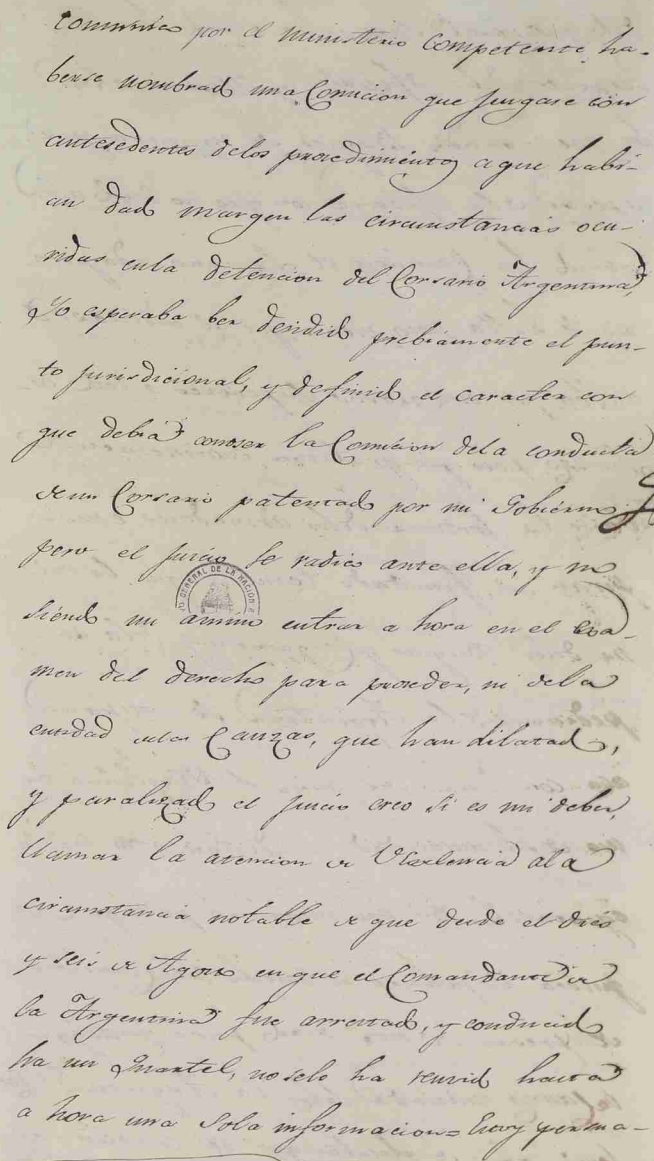 comunico por el ministerio competente, ha-
berse nombrado una Comicion que jusgase con
antesedentes delos procedimientos aque habi-
an dado margen las circunstancias ocu-
ridas enla detencion del Corsario Argentina,
Yo esperaba ber desidido prebiamente el pun-
to jurisdicional, y definido el caracter con
que debia conoser la Comicion dela conducta
de un Corsario patentado por mi Gobierno
pero el juicio se radico ante ella, y no
siendo mi animo entrar a hora en el exa-
men del derecho para proceder, ni dela
entidad delas Cauzas, que han dilatado,
y paralizado el juicio creo si es mi deber,
llamar la atencion de VExelencia ala
circunstancia notable de que desde el dies
y seis de Agosto en que el Comandante de
la Argentina fue arrestado, y conducido
ha un Quartel, no selo ha reuvido hasta
a hora una sola informacion=
GENERAL DE LA NACION